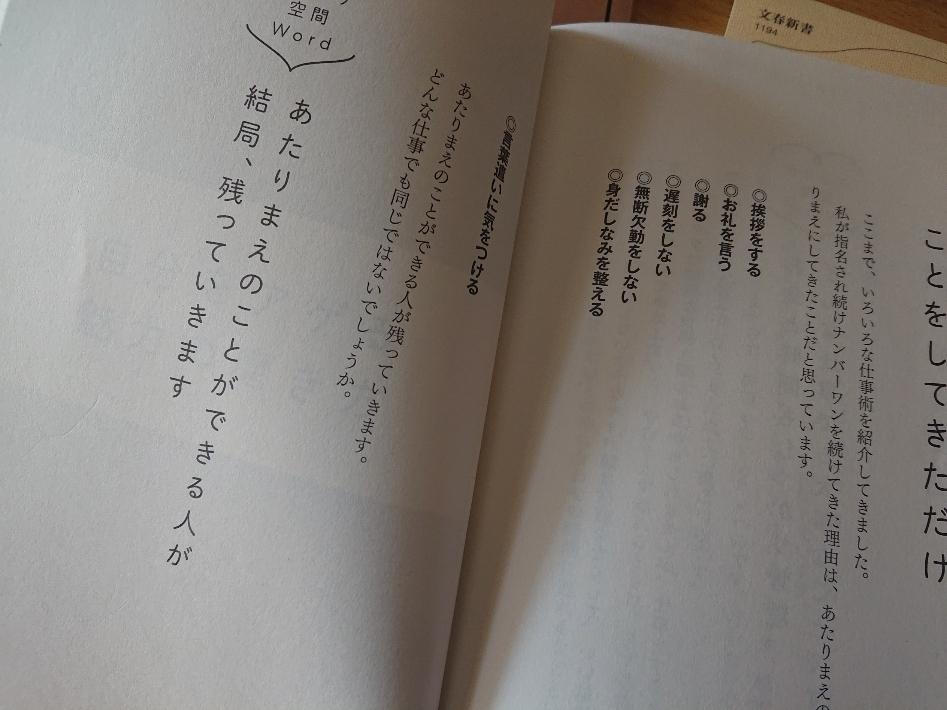 文春新書
1194
ことをしてきただけ
ここまで、いろいろな仕事術を紹介してきました。
私が指名され続けナンバーワンを続けてきた理由は、あたりまえの
りまえにしてきたことだと思っています。
◎挨拶をする
◎お礼を言う
◎謝る
◎遅刻をしない
◎無断欠勤をしない
◎身だしなみを整える
◎言葉遣いに気をつける
あたりまえのことができる人が残っていきます。
どんな仕事でも同じではないでしょうか。
空間
Word
あたりまえのことができる人が
結局、残っていきます